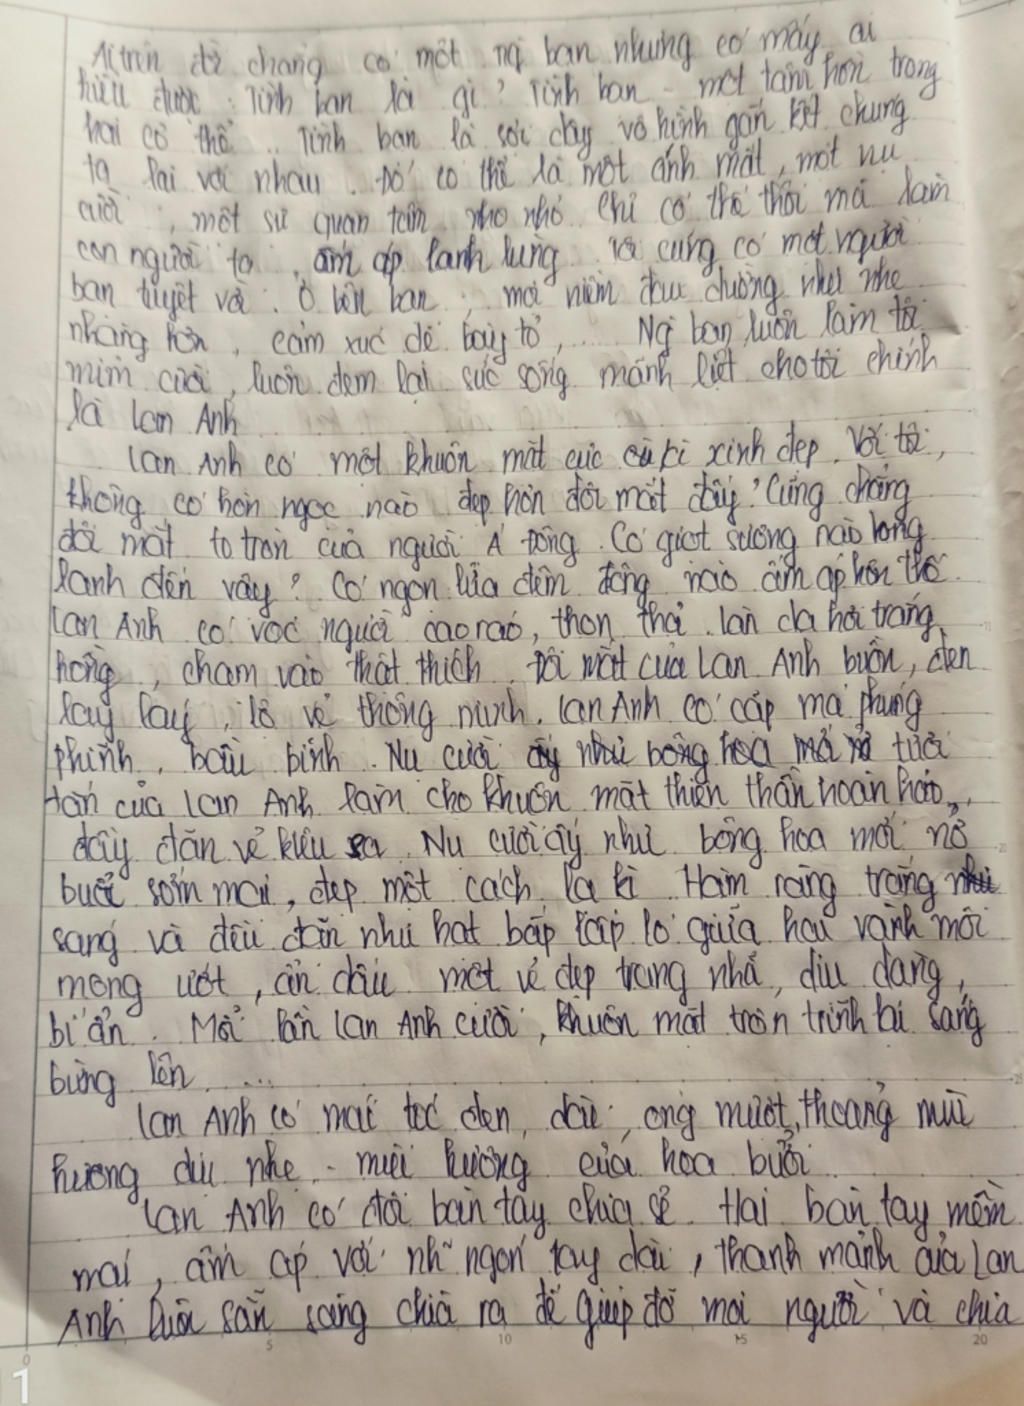 Ai trên đời chẳng có một ng bạn nhưng có mấy ai
hiểu được : Tình bạn là gì? Tình bạn - một tâm hồn trong
hai cơ thể .. Tình bạn là sợi dây vô hình gắn kết chúng
ta lại với nhau . Đó có thể là một ánh mắt, một nụ
cười , một sự quan tâm nho nhỏ. Chỉ có thế thôi mà làm
con người ta , ấm áp lạnh lùng . Tôi cũng có một người
bạn tuyệt vời . Ở bên bạn , mọi niềm đau dường như nhẹ
nhàng hơn , cảm xúc dễ bày tỏ , ..... Ng bạn luôn làm tôi
mỉm cười , luôn đem lại sức sống mãnh liệt cho tôi chính
là Lan Anh
Lan Anh có một khuôn mặt cực cù kì xinh đẹp. Với tôi,
không có hòn ngọc nào đẹp hơn đôi mắt đấy! Cũng chẳng
đôi mắt to tròn của người Á Đông. Có giọt sương nào long
lanh đến vậy? Có ngọn lửa đêm đông nào ấm áp hơn thế.
Lan Anh có vóc người cao ráo, thon thả. Làn da hơi trắng
hồng , chạm vào thật thích . Đôi mắt của Lan Anh buồn, đen
lay láy , lộ vẻ thông minh. Lan Anh có cặp má phúng
phính , bầu bĩnh . Nụ cười ấy như bông hoa mới nở tươi
tắn của Lan Anh làm cho khuôn mặt thiên thần hoàn hảo,
đầy đặn vẻ kiêu sa. Nụ cười ấy như bông hoa mới nở
buổi sớm mai, đẹp một cách lạ kì. Hàm răng trắng như
sáng và đều đặn như hạt bắp lấp ló giữa hai vành môi
mọng ướt, ẩn dấu một vẻ đẹp trang nhã, dịu dàng,
bí ẩn . Mỗi lần Lan Anh cười, khuôn mặt tròn trĩnh lại sáng
bừng lên .....
Lan Anh có mái tóc đen, dài, óng mượt, thoảng mùi
hương dịu nhẹ - mùi hương của hoa bưởi
Lan Anh có đôi bàn tay chia sẻ. Hai bàn tay mềm
mại, ấm áp với nh~ ngón tay dài, thanh mảnh của Lan
Anh luôn sẵn sàng chìa ra để giúp đỡ mọi người và chia